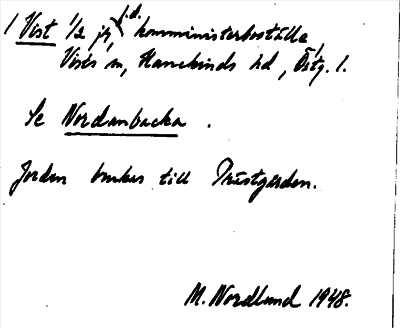 1 Vist 1/2 jg f.d. komministerboställe
Vists sn, Hanekinds hd, Östg. l.
Se Nordanbacka.
Jorden brukas till Prästgården.
M. Nordlund 1948.